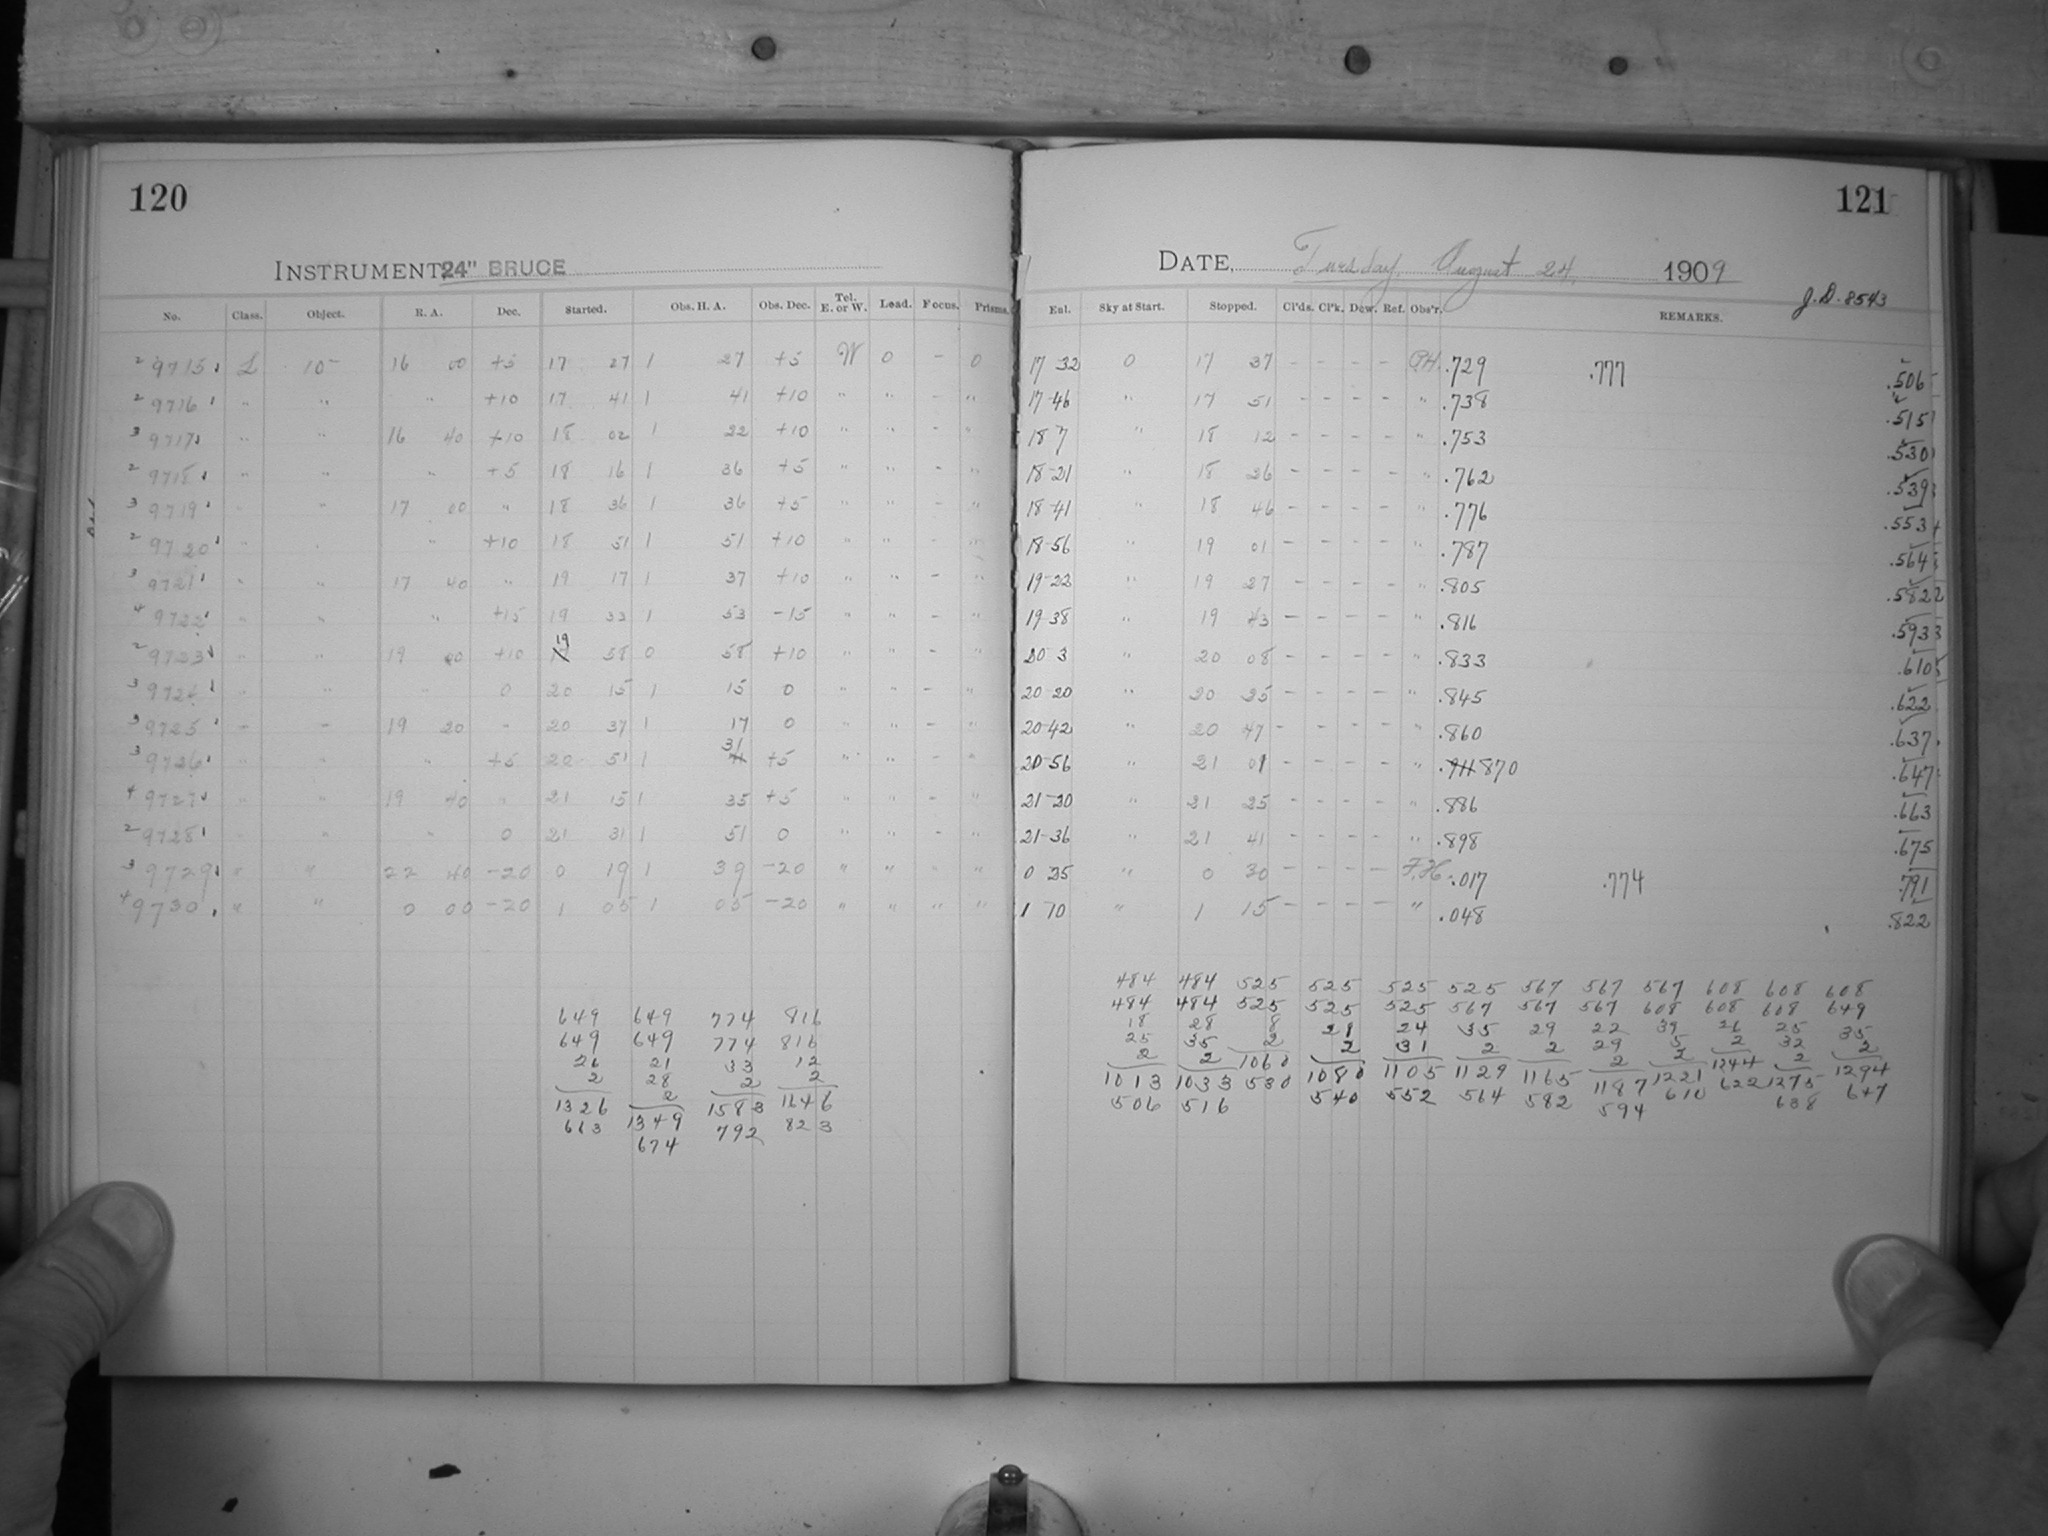 120
INSTRUMENT, 24" BRUCE
No. Class. Object. R. A. Dec. Started. Obs. H. A. Obs. Dec. Tel. E. or W. Load. Focus. Prisms.
2 9715 L 10 - 16 00 +5 17 27 1 27 +5 W 0 - 0
2 9716 " " " +10 17 41 1 41 +10 " " - "
3 9717 " " 16 40 +10 18 02 1 22 +10 " " - "
2 9718 " " " +5 18 16 1 36 +5 " " - "
3 9719 " " 17 00 " 18 36 1 36 +5 " " - "
2 9720 " " " +10 18 51 1 51 +10 " " - "
3 9721 " " 17 40 " 19 17 1 37 +10 " " - "
4 9722 " " " +15 19 33 1 53 -15 " " - "
2 9723 " " 19 00 +10 19 58 0 58 +10 " " - "
3 9724 " " " 0 20 15 1 15 0 " " - "
3 9725 - - 19 20 - 20 37 1 17 0 " " - "
3 9726 " " " +5 20 51 1 31 +5 " " - "
4 9727 " " 19 40 " 21 15 1 35 +5 " " - "
2 9728 " " " 0 21 31 1 51 0 " " - "
3 9729 " " 22 40 -20 0 19 1 39 -20 " " " "
4 9730 " " 0 00 -20 1 05 1 05 -20 " " " "
649 649 774 816
649 649 774 816
26 21 33 12
2 28 2 2
1326 2 1583 1646
663 1349 792 823
674
121
DATE, Tuesday, August 24, 1909
J.D. 8543
Enl. Sky at Start. Stopped. Cl'ds. Cl'k. Dew. Ref. Obs'r. REMARKS.
17 32 0 17 37 - - - - P.H. .729 .777 .506
17-46 " 17 51 - - - - " .738 .515
18 7 " 18 12 - - - - " .753 .530
18-21 " 18 26 - - - - " .762 .539
18-41 " 18 46 - - - - " .776 .553
18-56 " 19 01 - - - - " .787 .564
19-22 " 19 27 - - - - " .805 .582
19-38 " 19 43 - - - - " .816 .593
20 3 " 20 08 - - - - " .833 .610
20 20 " 20 25 - - - - " .845 .622
20 42 " 20 47 - - - - " .860 .637
20-56 " 21 01 - - - - " .870 .647
21-20 " 21 25 - - - - " .886 .663
21-36 " 21 41 - - - - " .898 .675
0 25 " 0 30 - - - - F.H. .017 .774 .791
1 10 " 1 15 - - - - " .048 .822
484 484 525 525 525 525 567 567 567 608 608 608
484 484 525 525 525 567 567 567 608 608 608 649
18 28 8 28 24 35 29 22 39 26 25 35
25 35 2 2 31 2 2 29 5 2 32 2
2 2 1060 1080 1105 1129 1165 2 2 1244 2 1294
1013 1033 530 540 552 564 582 1187 1221 622 1275 647
506 516 594 610 638